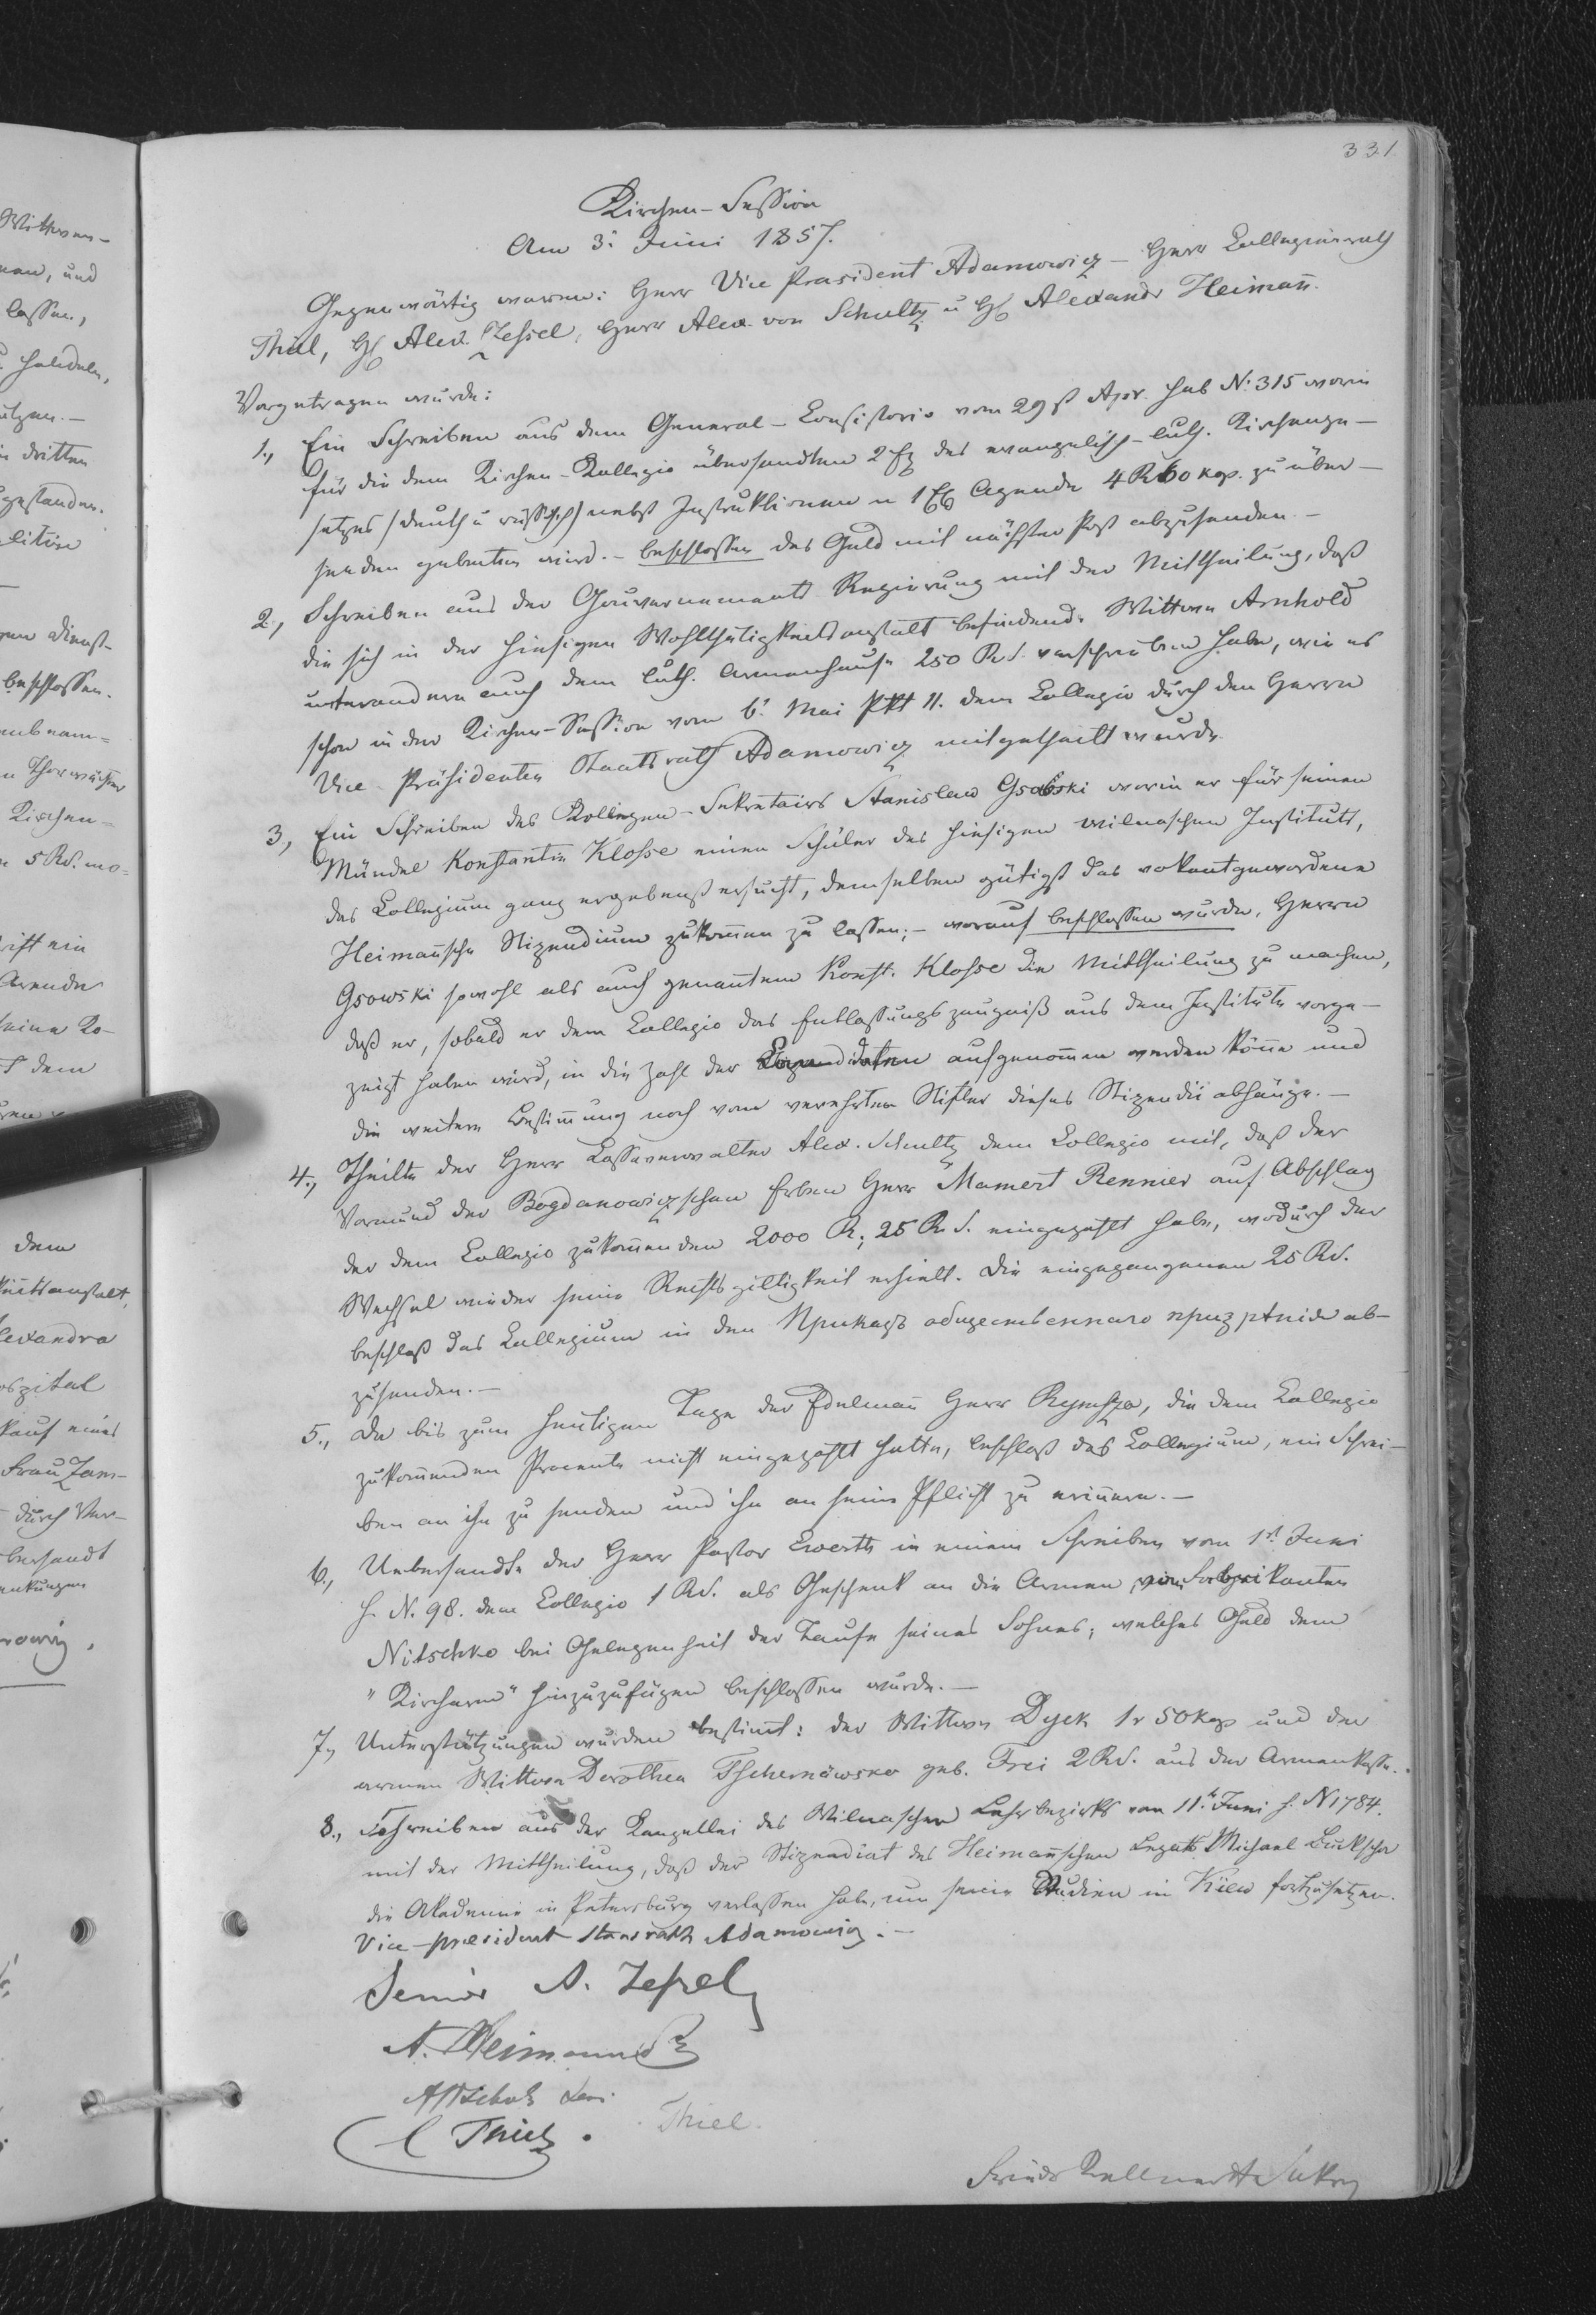 331
Kirchen-Session
Am 3. Juni 1857.
Gegenwärtig waren: Herr Vice Präsident Adamowicz – Herr Collegienrath
Thiel, H. Alex. Zessel, Herr Alex. von Schultz u H. Alexander Heimañ.
Vorgetragen wurde:
1., Ein Schreiben aus dem General-Consistorio vom 29st Apr. sub N. 315 worin
für die dem Kirchen-Kollegio übersandten 2 Ex des evangelisch-luth. Kirchenge-
setzes (deutsch u russisch) nebst Instruktionen u 1 Ex Agende 4 R 60 kop. zu über-
senden gebeten wird. – beschlossen das Geld mit nächster Post abzusenden –
2., Schreiben aus der Gouvernements Regierung mit der Mittheilung, daß
die sich in der hiesigen Wohlthätigkeitsanstalt befindende Wittwe Arnhold
unterandern auch dem luth. Armenhause 250 R.S. verschrieben habe, wie es
schon in der Kirchen-Session vom 6. Mai Pkt 11. dem Collegio durch den Herrn
Vice-Präsidenten Staatsrath Adamowicz mitgetheilt wurde.
3., Ein Schreiben des Kollegien-Sekretairs Stanislaw Gsowski worin er für seinen
Mündel Konstantin Klosse einen Schüler des hiesigen wilnaschen Instituts,
das Collegium ganz ergebenst ersucht, demselben gütigst das vakantgewordene
Heimañsche Stipendium zukom̃en zu lassen; – worauf beschlossen wurde, Herrn
Gsowski sowohl als auch genantem Konst. Klosse die Mittheilung zu machen,
daß er, sobald er dem Collegio das Entlassungszeugniß aus dem Institute vorge-
zeigt haben wird, in die Zahl der aufgenom̃en werden köñe und
die weitere Bestim̃ung noch vom verehrten Stifter dieses Stipendii abhänge. –
4., Theilte der Herr Cassaverwalter Alex. Schultz dem Collegio mit, daß der
Vormund der Bogdanowiczschen Erben Herr Mamert Rennier auf Abschlag
der dem Collegio zukom̃enden 2000 R; 25 R.S. eingezahlt habe, wodurch der
Wechsel wieder seine Rechtsgiltigkeit erhielt. Die eingegangenen 25 RS.
beschloß das Collegium in den Приказъ общественнаго призрѣнія ab-
zusenden. –
5., Da bis zum heutigen Tage der Edelmañ Herr Rymsza, die dem Collegio
zukom̃enden Procente nicht eingezahlt hatte, beschloß das Collegium, ein Schrei-
ben an ihn zu senden und ihn an seine Pflicht zu eriñern. –
6., Uebersandte der Herr Pastor Ewerth in einem Schreiben vom 1st Juni
s. N. 98. dem Collegio 1 RS. als Geschenk an die Armen, vom Fabrikanten
Nitschke bei Gelegenheit der Taufe seines Sohnes; welches Geld dem
hinzuzufügen beschlossen wurde. –
7., Unterstützungen wurden bestim̃t: der Wittwe Dyck 1 r 50 kop und der
armen Wittwe Dorothea Tschernäwska geb. Frei 2 RS. aus der Armenkasse.
8., Schreiben aus der Kanzellei des Wilnaschen Lehrbezirks vom 11. Juni s. N 1784.
mit der Mittheilung, daß der Stipendiat des Heimañschen Legats Michael
die Akademie in Petersburg verlassen habe, um seine Studien in Kiew fortzusetzen.
Vice-president Staatsrath Adamowicz. –
Senior A. Zessel
A. Heimann
A Schultz
C Thiel. Thiel.
Wittwen-
und
lassen,
dritten
beschlossen.
Kirchen-
5 RS.
dem
dem
lexandra
ospital